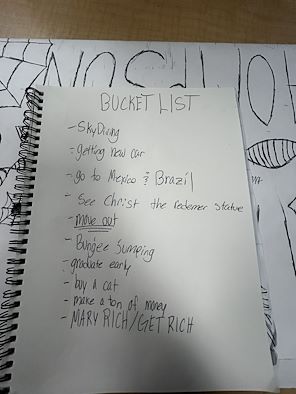 BUCKET LIST
- SkyDiving
- getting new car
- go to Mexico & Brazil
- See Christ the Redemer statue
- move out
- Bungee Jumping
- graduate early
- buy a cat
- make a ton of money
- MARY RICH/GET RICH